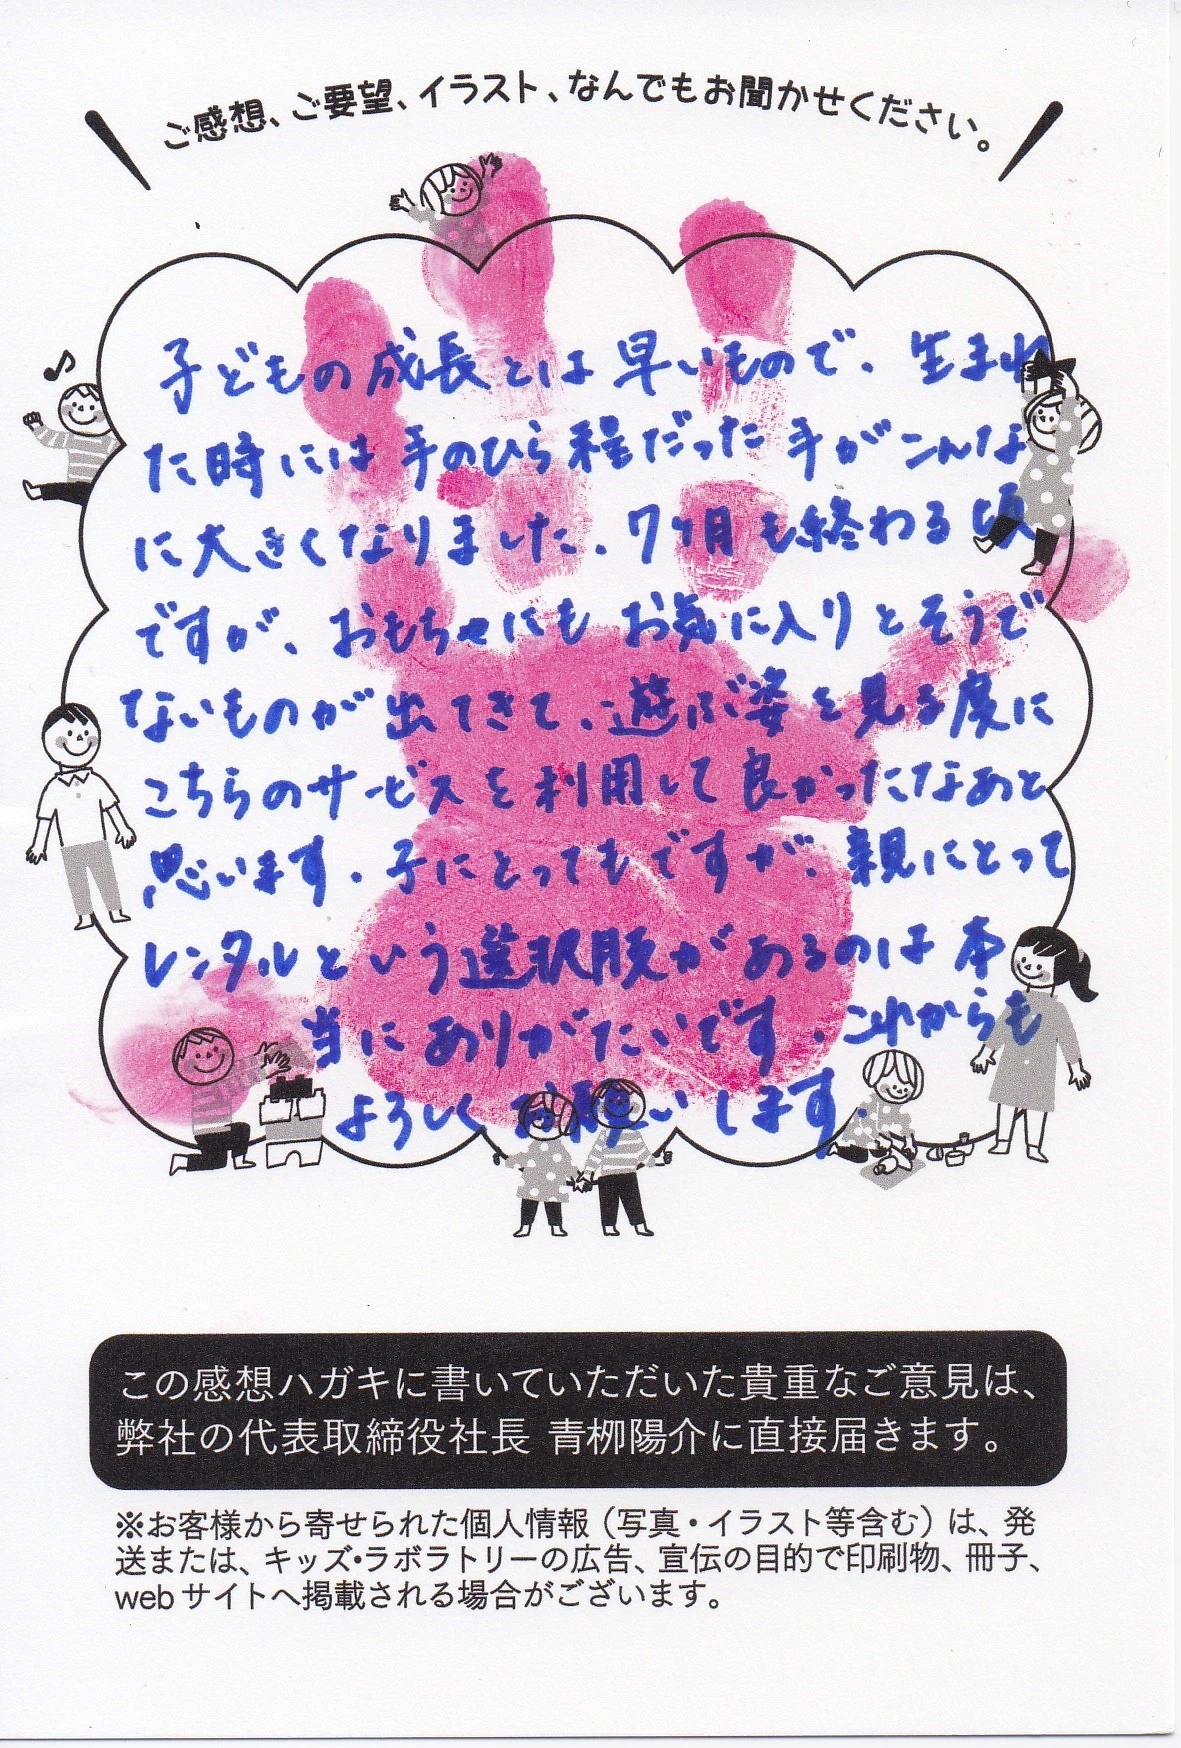 ご感想、ご要望、イラスト、なんでもお聞かせください。
子どもの成長とは早いもので、生まれ
た時には手のひら程だった手がこんな
に大きくなりました。7ヶ月も終わる頃
ですが、おもちゃにもお気に入りとそうで
ないものが出てきて、遊ぶ姿を見る度に
こちらのサービスを利用して良かったなあと
思います。子にとってもですが、親にとって
レンタルという選択肢があるのは本
当にありがたいです。これからも
よろしくお願いします。
この感想ハガキに書いていただいた貴重なご意見は、
弊社の代表取締役社長 青栁陽介に直接届きます。
※お客様から寄せられた個人情報（写真・イラスト等含む）は、発
送または、キッズ・ラボラトリーの広告、宣伝の目的で印刷物、冊子、
webサイトへ掲載される場合がございます。